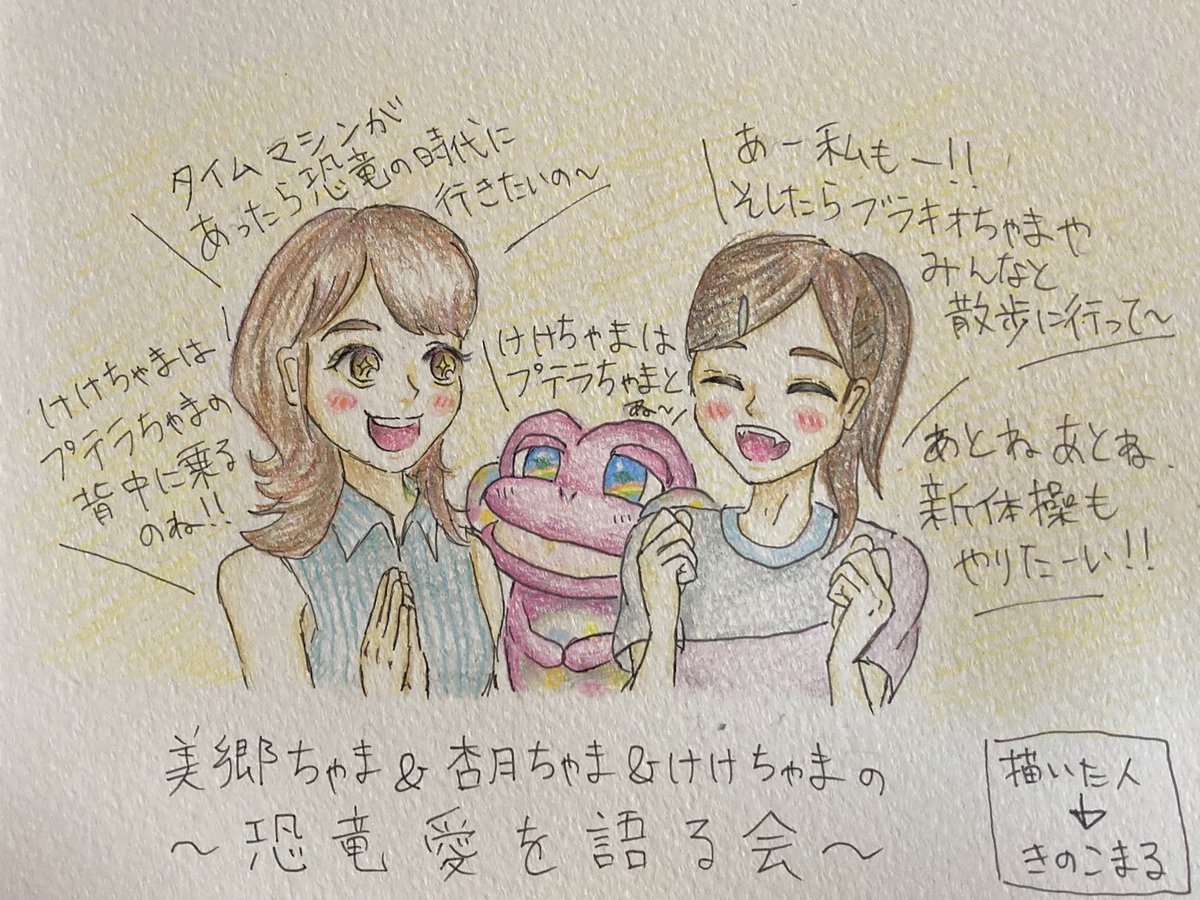 タイムマシンが
あったら恐竜の時代に
行きたいの〜
けけちゃまは
プテラちゃまの
背中に乗る
のね!!
けけちゃまは
プテラちゃまと
ね〜ッ
あー私もー!!
そしたらブラキオちゃまや
みんなと
散歩に行って〜
あとねあとね
新体操も
やりたーい!!
美郷ちゃま&杏月ちゃま&けけちゃまの
〜恐竜愛を語る会〜
描いた人
↓
きのこまる